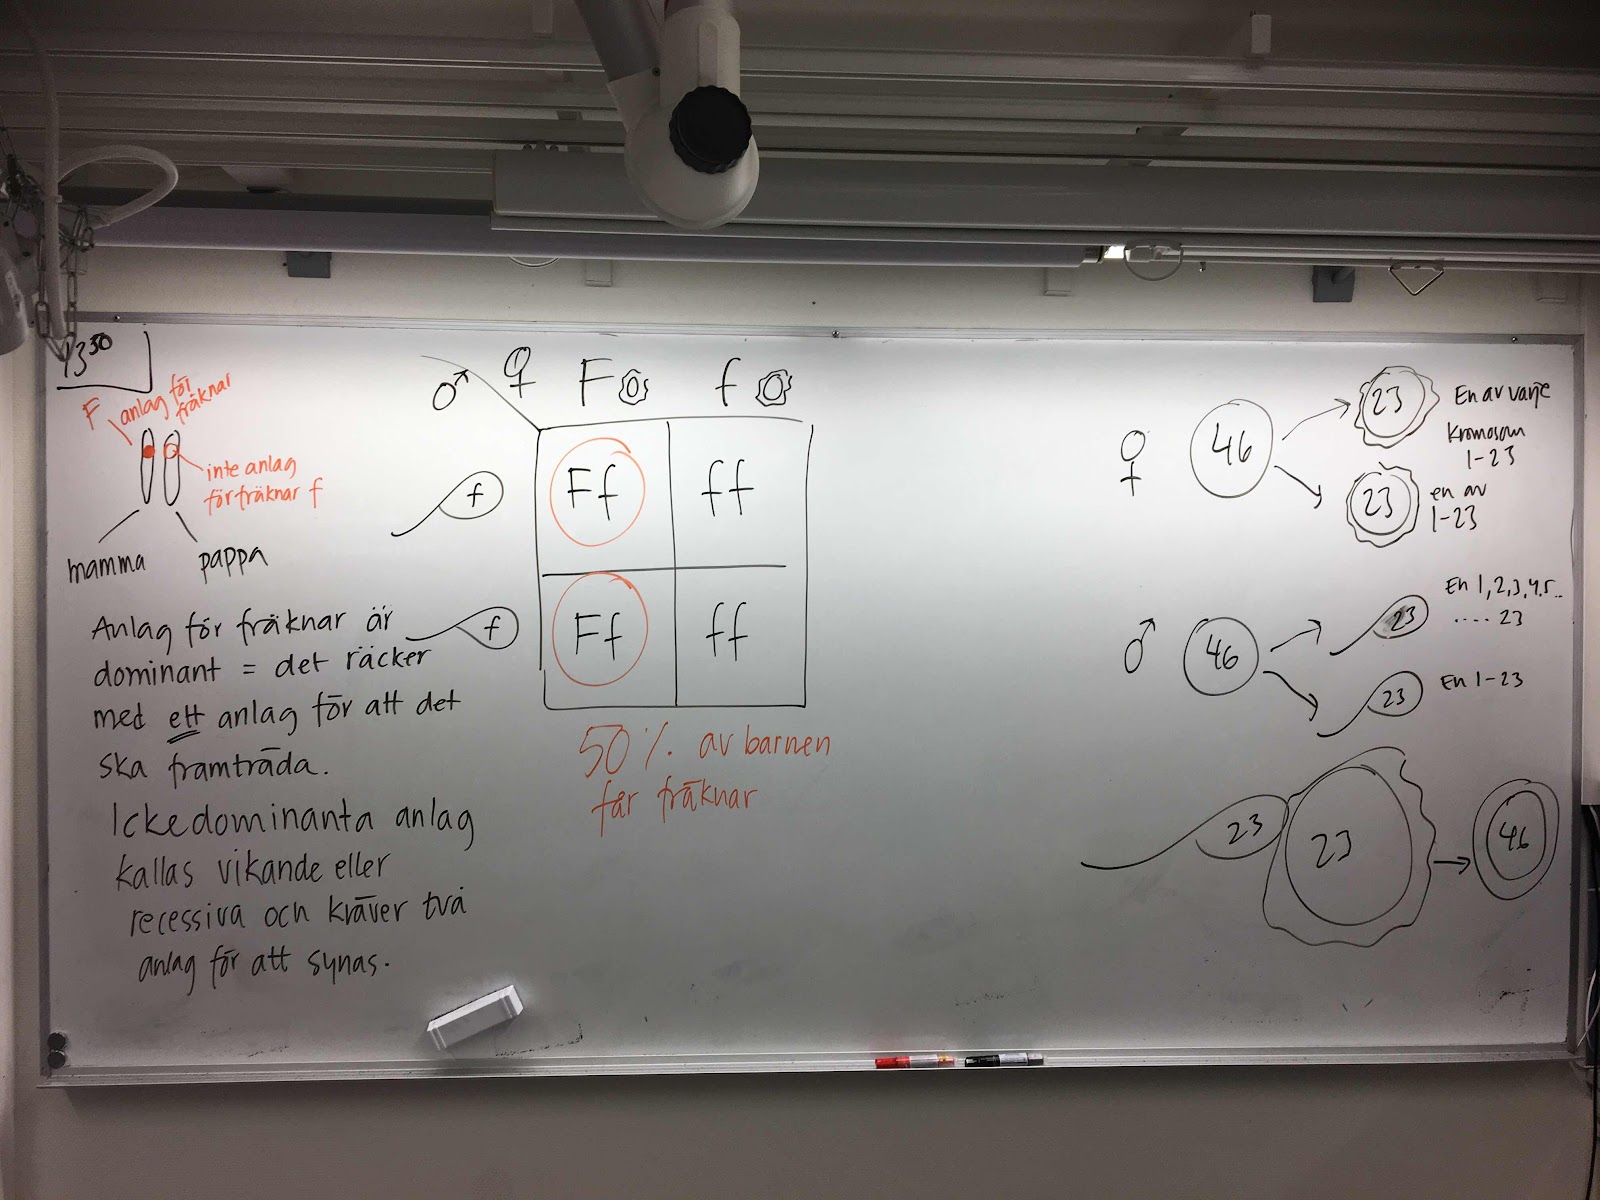 13 30
F anlag för
fräknar
inte anlag
för fräknar f
mamma pappa
Anlag för fräknar är
dominant = det räcker
med ett anlag för att det
ska framträda.
Ickedominanta anlag
kallas vikande eller
recessiva och kräver två
anlag för att synas.
♂ ♀ F f
f Ff ff
f Ff ff
50 % av barnen
får fräknar
♀ 46
23 En av varje
Kromosom
1-23
23 en av
1-23
♂ 46
23 En 1,2,3,4,5..
.... 23
23 En 1-23
23 23 → 46